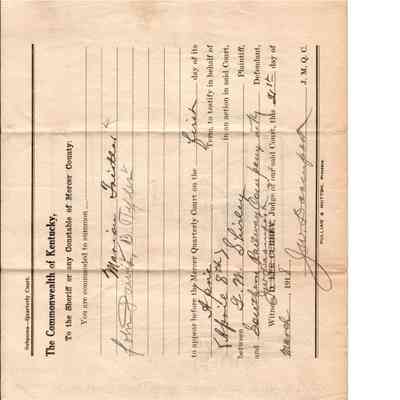 Subpoena—Quarterly Court.
The Commonwealth of Kentucky,
To the Sheriff or any Constable of Mercer County:
You are commanded to summon
Marion
John B.
to appear before the Mercer Quarterly Court on the first day of its
April Term, to testify in behalf of
(April 8th) in an action in said Court,
between G. W. Shirley Plaintiff,
and Southern Railway Company Defendant,
Witness, Judge of our said Court, this 21st day of
March, 1918
J. M. Q. C.
PULLIAM & HUTTON, PRINTERS